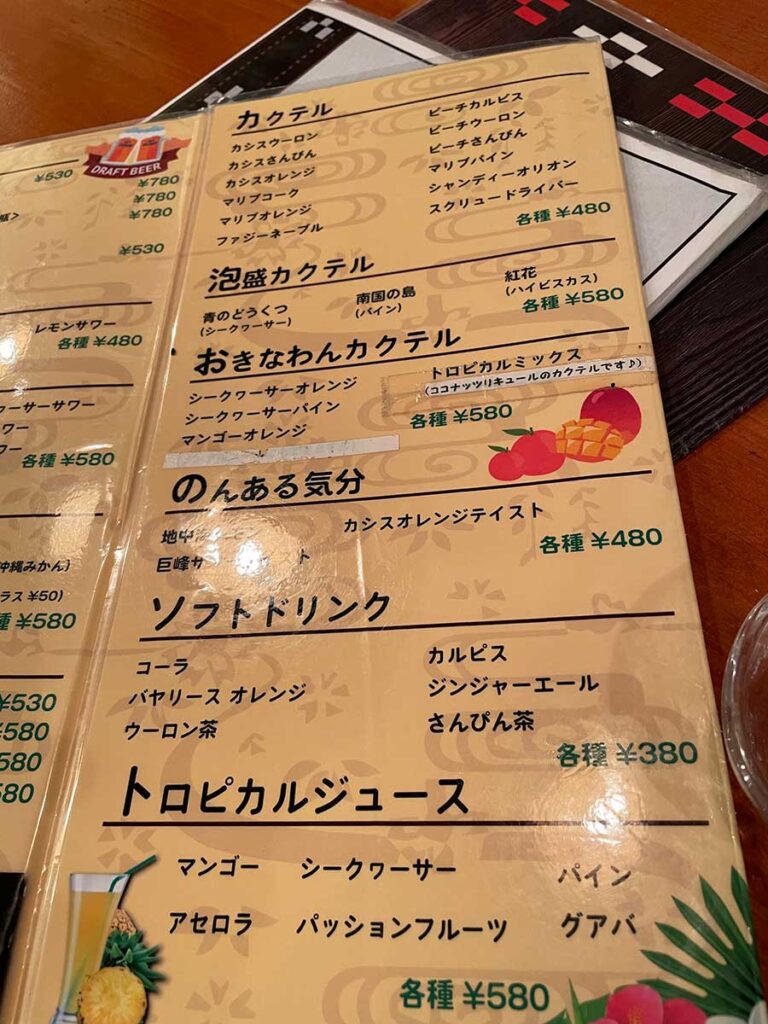 ¥530
DRAFT BEER
¥780
¥780
¥780
¥530
レモンサワー
各種 ¥480
ーサーサワー
ワー
各種 ¥580
沖縄みかん)
ラス ¥50)
種 ¥580
¥530
¥580
¥580
580
カクテル
カシスウーロン
カシスさんぴん
カシスオレンジ
マリブコーク
マリブオレンジ
ファジーネーブル
ピーチカルピス
ピーチウーロン
ピーチさんぴん
マリブパイン
シャンディーオリオン
スクリュードライバー
各種 ¥480
泡盛カクテル
青のどうくつ
(シークヮーサー)
南国の島
(パイン)
紅花
(ハイビスカス)
各種 ¥580
おきなわんカクテル
シークヮーサーオレンジ
シークヮーサーパイン
マンゴーオレンジ
トロピカルミックス
(ココナッツリキュールのカクテルです♪)
各種 ¥580
のんある気分
地中
巨峰サ
カシスオレンジテイスト
各種 ¥480
ソフトドリンク
コーラ
バヤリース オレンジ
ウーロン茶
カルピス
ジンジャーエール
さんぴん茶
各種 ¥380
トロピカルジュース
マンゴー シークヮーサー パイン
アセロラ パッションフルーツ グアバ
各種 ¥580